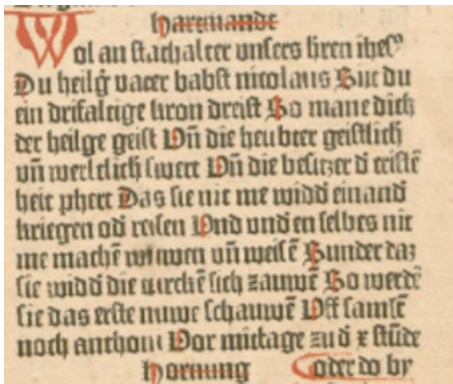 hartmande
Wol an stathalter vnsers hren ihesꝰ
Du heilḡ vater babst nicolaus Sint du
ein drifaltige kron dreist So mane dich
der heilge geist Vñ die heubter geistlich
vñ werltlich swert Vñ die besitzer d̄ cristē
heit phert Das sie nit me widd̄ einand̄
kriegen od̄ reisen Vnd vnd̄ en selbes nit
me machē witwen vñ weisē Sunder daz
sie widd̄ die turckē sich zauwē So werdē
sie das erste nuwe schauwē Vff samsē
noch anthonii Vor mittage zu d̄ x stūde
hornung Oder do by